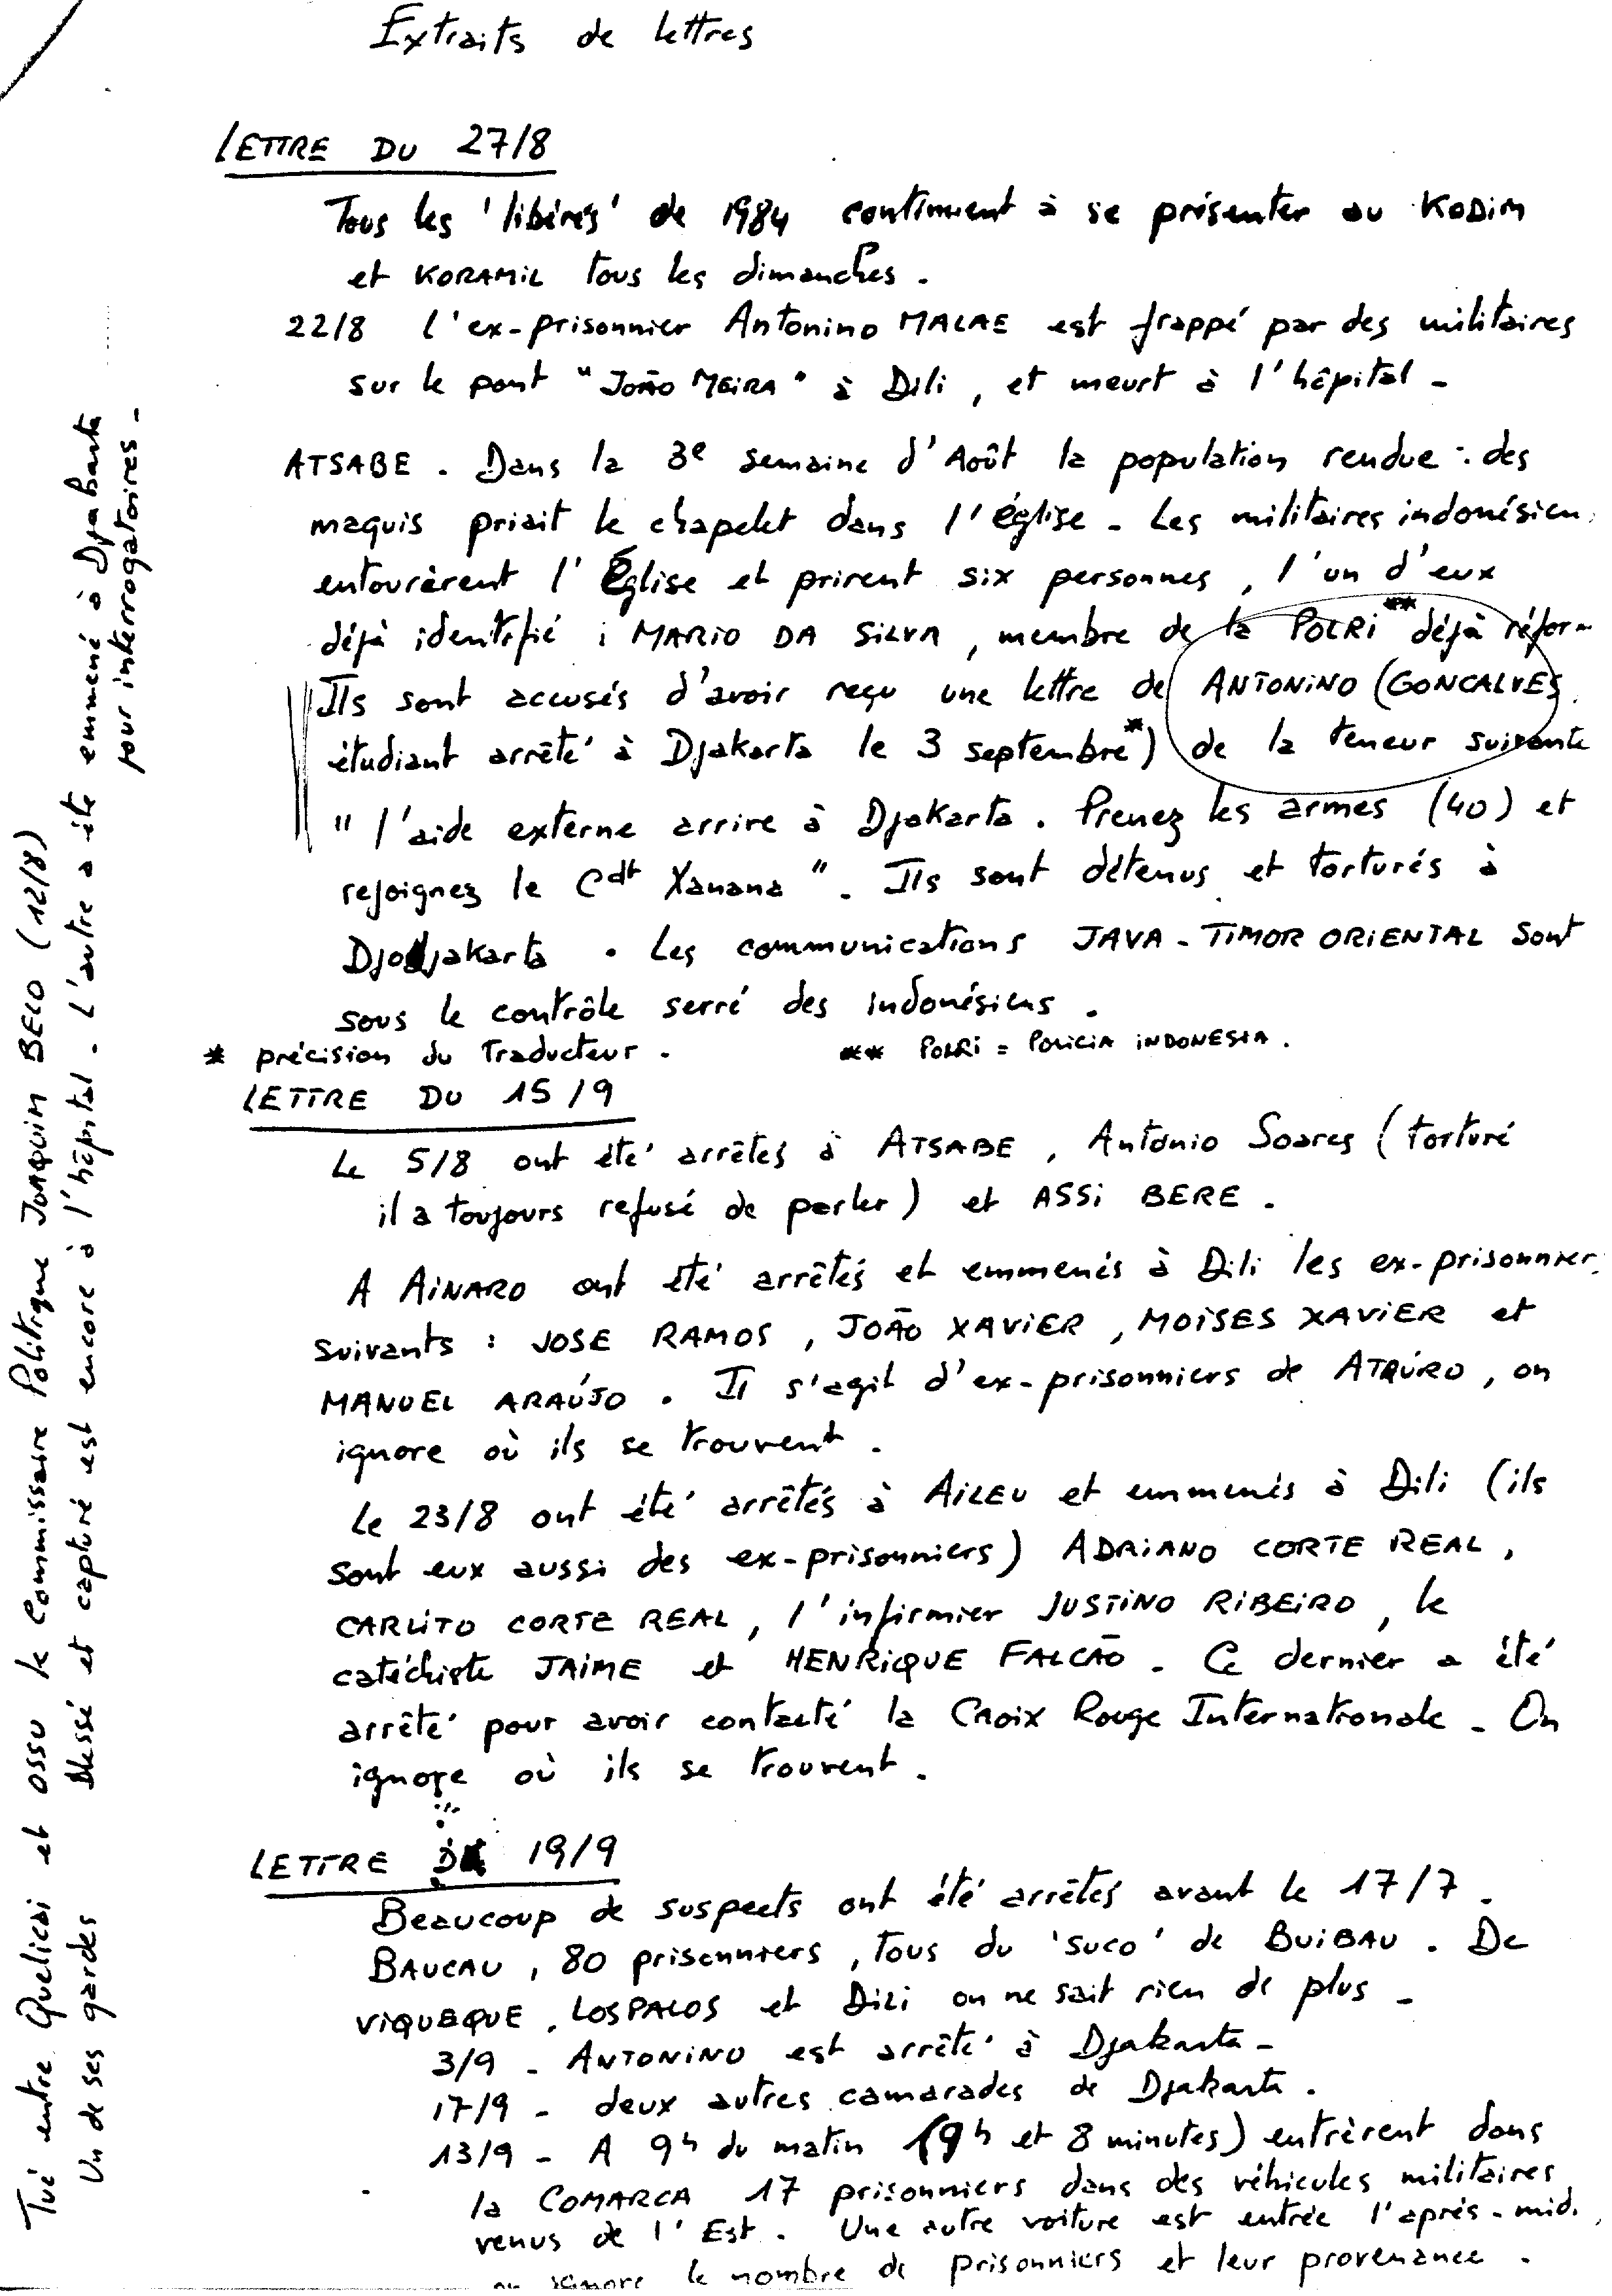 Extraits de lettres
LETTRE DU 27/8
Tous les 'libérés' de 1984 continuent à se présenter au KODIM
et KORAMIL tous les dimanches.
22/8 l'ex-prisonnier Antonino MALAE est frappé par des militaires
sur le pont "João MEIRA" à Dili, et meurt à l'hôpital -
ATSABE. Dans la 3e semaine d'Août la population rendue des
maquis priait le chapelet dans l'église - Les militaires indonésien
entourèrent l'Église et prirent six personnes, l'un d'eux
déjà identifié : MARIO DA SILVA, membre de la POLRI** déjà réfor-
Ils sont accusés d'avoir reçu une lettre de ANTONINO (GONCALVES,
étudiant arrêté à Djakarta le 3 septembre*) de la teneur suivante
"l'aide externe arrive à Djakarta. Prenez les armes (40) et
rejoignez le Cdt Xanana". Ils sont détenus et torturés à
Djodjakarta. Les communications JAVA - TIMOR ORIENTAL sont
sous le contrôle serré des Indonésiens.
* précision du traducteur. ** POLRI = POLICIA INDONESIA.
LETTRE DU 15/9
Le 5/8 ont été arrêtés à ATSABE, António Soares (torturé
il a toujours refusé de parler) et ASSI BERE.
A AINARO ont été arrêtés et emmenés à Dili les ex-prisonnier
suivants : JOSE RAMOS, JOÃO XAVIER, MOISES XAVIER et
MANUEL ARAÚJO. Il s'agit d'ex-prisonniers de ATAÚRO, on
ignore où ils se trouvent.
Le 23/8 ont été arrêtés à AILEU et emmenés à Dili (ils
sont eux aussi des ex-prisonniers) ADRIANO CORTE REAL,
CARLITO CORTE REAL, l'infirmier JUSTINO RIBEIRO, le
catéchiste JAIME et HENRIQUE FALCÃO. Ce dernier a été
arrêté pour avoir contacté la Croix Rouge Internationale - On
ignore où ils se trouvent.
LETTRE DU 19/9
Beaucoup de suspects ont été arrêtés avant le 17/7.
BAUCAU, 80 prisonniers, tous du 'suco' de BUIBAU. De
VIQUEQUE, LOSPALOS et DILI on ne sait rien de plus -
3/9 - ANTONINO est arrêté à Djakarta -
17/9 - deux autres camarades de Djakarta.
13/9 - A 9h du matin (9h et 8 minutes) entrèrent dans
la COMARCA 17 prisonniers dans des véhicules militaires
venus de l'Est. Une autre voiture est entrée l'après-midi,
on ignore le nombre de prisonniers et leur provenance.
Tué entre Quelicai et OSSU le Commissaire Politique JOAQUIM BELO (12/8)
Un de ses gardes blessé et capturé est encore à l'hôpital. L'autre a été emmené à Djakarta
pour interrogatoires -